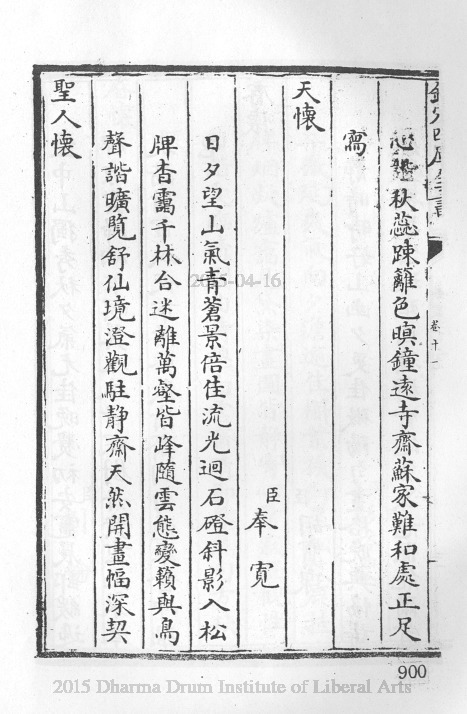 欽定四庫全書
卷十一
秋蕊踈籬色暝鐘遠寺齋蘇家難和處正足
寫
天懷
臣奉寛
日夕望山氣青蒼景倍佳流光迴石磴斜影入松
牌杳靄千林合迷離萬壑皆峰隨雲態變籟與鳥
聲諧曠覽舒仙境澄觀駐静齋天然開畫幅深契
聖人懷
2015-04-16
900
2015 Dharma Drum Institute of Liberal Arts